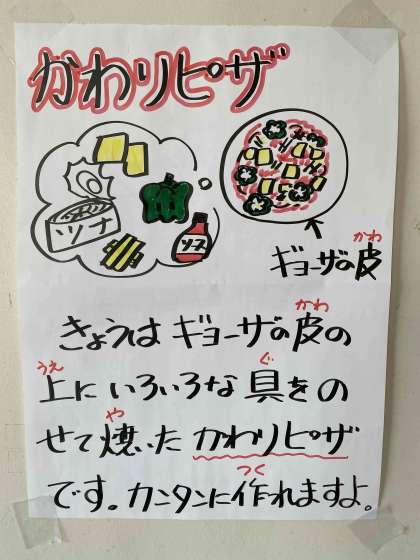 かわりピザ
ツナ
ソース
ギョーザの皮
かわ
きょうは ギョーザの皮の
かわ
上に いろいろな 具をの
うえ ぐ
せて 焼いた かわりピザ
や
です。カンタンに作れますよ。
つく